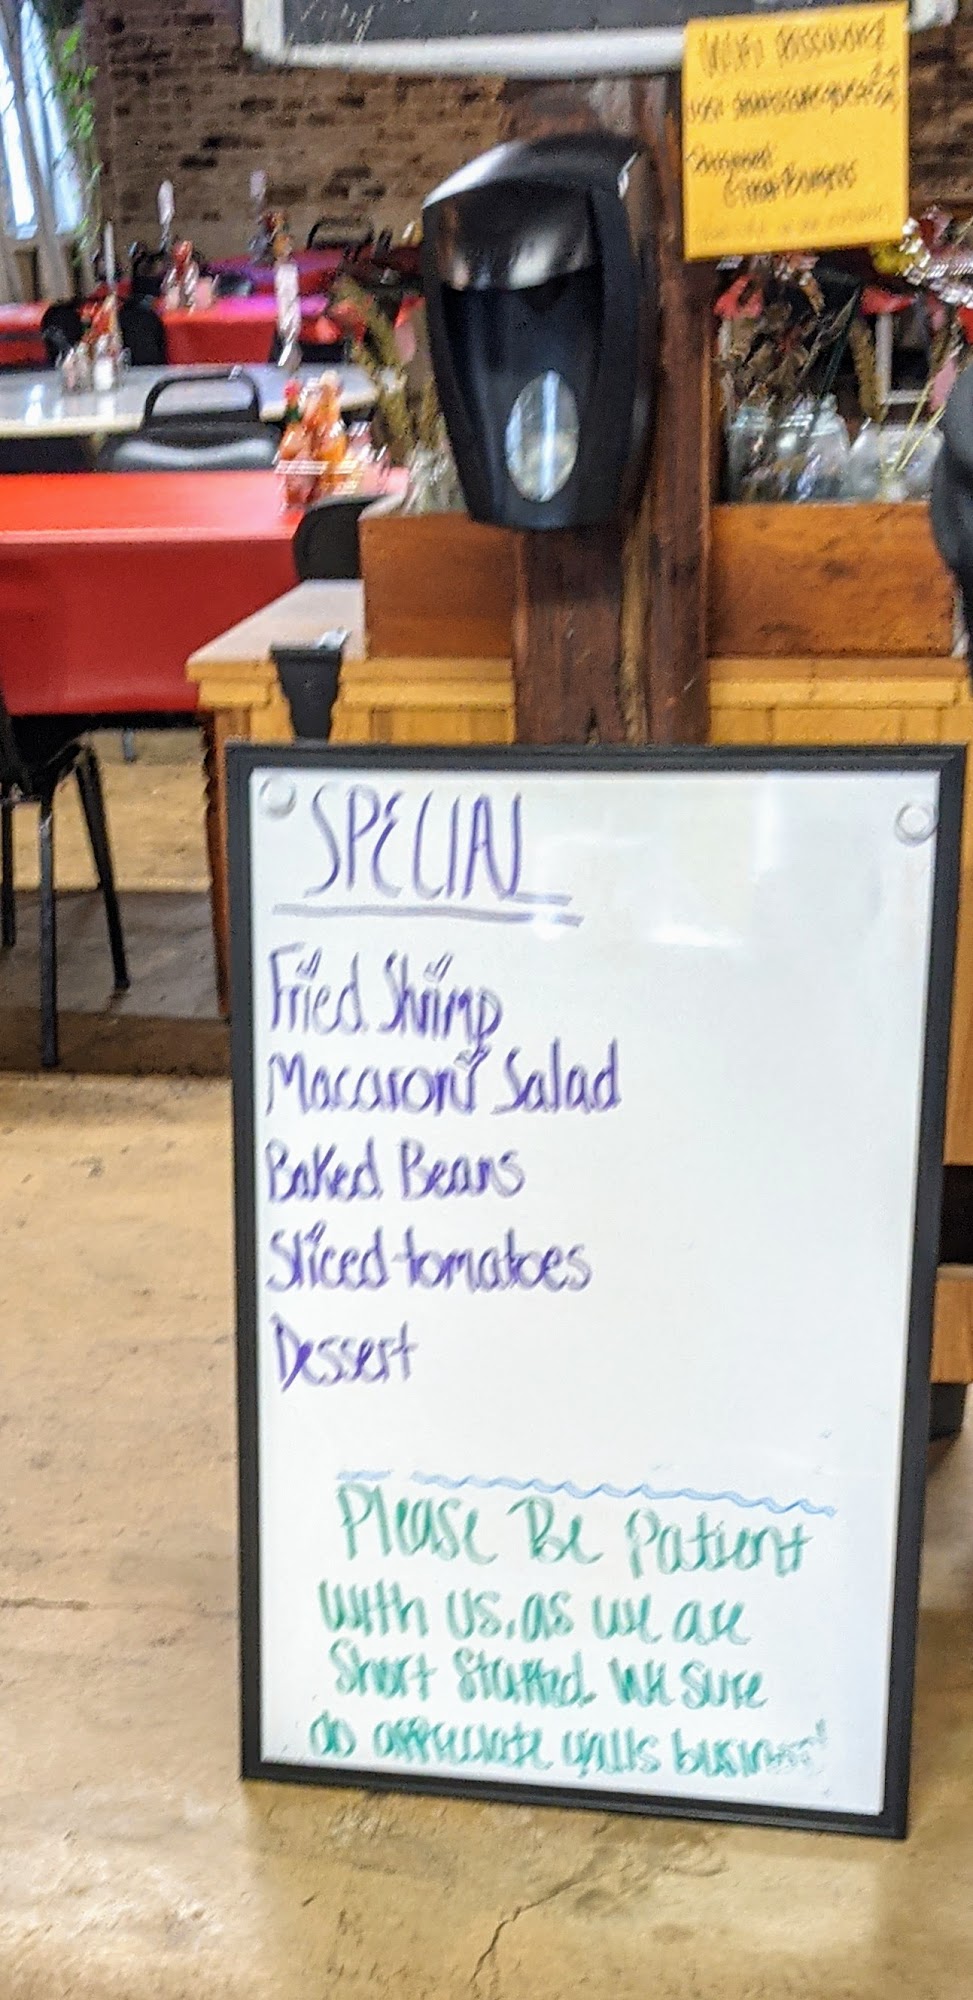 SPECIAL
Fried Shrimp
Macaroni Salad
Baked Beans
Sliced tomatoes
Dessert
Please Be Patient
with us, as we are
Short Staffed. We Sure
do appreciate yalls business!